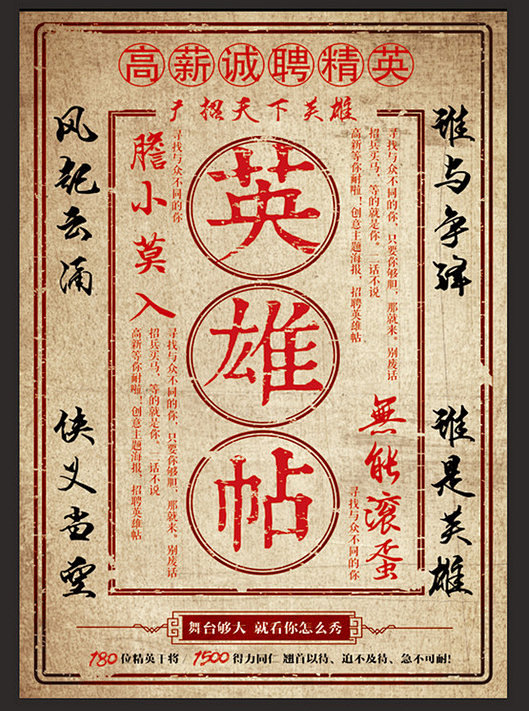 高薪诚聘精英
广招天下英雄
谁与争锋
谁是英雄
风起云涌
侠义当空
英雄帖
寻找与众不同的你，只要你够胆，那就来。别废话
招兵买马，等的就是你。二话不说
高新等你耐啦！创意主题海报，招聘英雄帖
寻找与众不同的你
胆小莫入
無能滚蛋
寻找与众不同的你
寻找与众不同的你，只要你够胆，那就来。别废话
招兵买马，等的就是你。二话不说
高新等你耐啦！创意主题海报，招聘英雄帖
舞台够大 就看你怎么秀
180位精英干将 / 1500得力同仁 翘首以待、迫不及待、急不可耐!